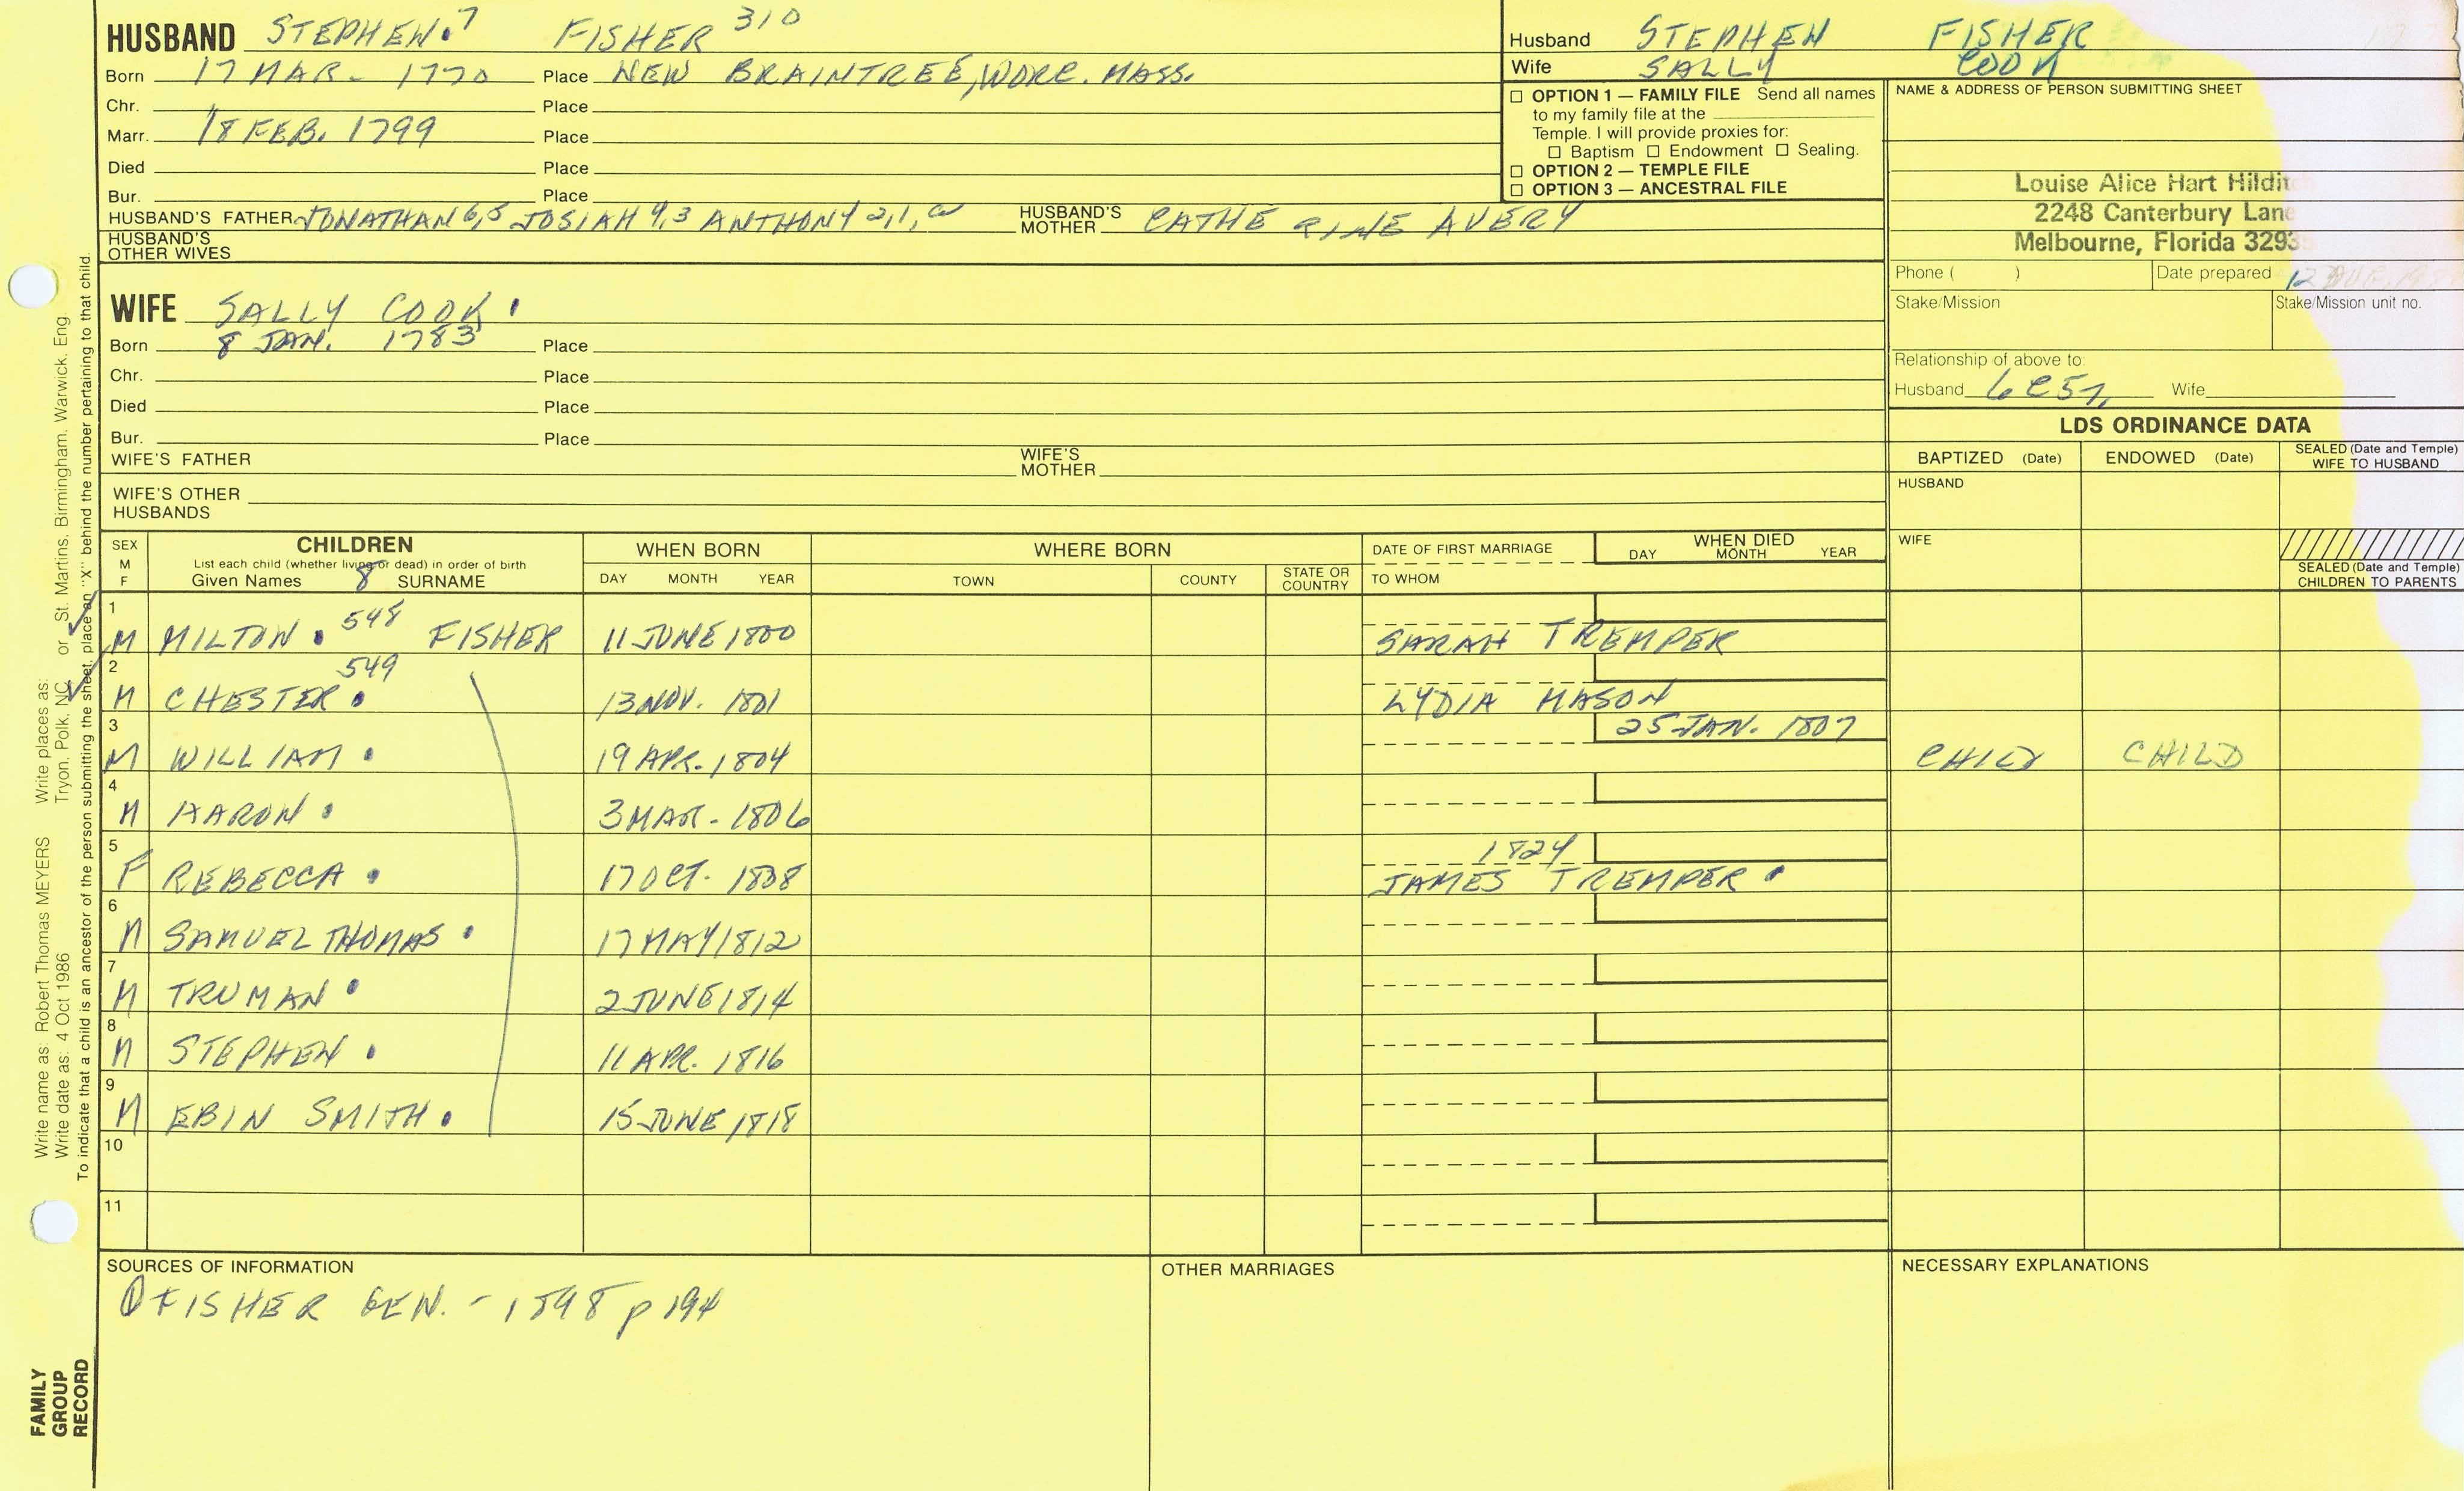 HUSBAND STEPHEN.7 FISHER 310
Born 17 MAR- 1770 Place NEW BRAINTREE, WORC. MASS.
Chr. Place
Marr. 18 FEB. 1799 Place
Died Place
Bur. Place
HUSBAND'S FATHER JONATHAN 6,5 JOSIAH 4,3 ANTHONY 2,1, HUSBAND'S MOTHER CATHERINE AVERY
HUSBAND'S OTHER WIVES
Husband STEPHEN FISHER
Wife SALLY COOK
☐ OPTION 1 — FAMILY FILE Send all names
to my family file at the
Temple. I will provide proxies for:
☐ Baptism ☐ Endowment ☐ Sealing.
☐ OPTION 2 — TEMPLE FILE
☐ OPTION 3 — ANCESTRAL FILE
NAME & ADDRESS OF PERSON SUBMITTING SHEET
Louise Alice Hart
2248 Canterbury Lane
Melbourne, Florida
Phone ( ) Date prepared 12
Stake/Mission Stake/Mission unit no.
Relationship of above to:
Husband 6C5 Wife
WIFE SALLY COOK.
Born 8 JAN. 1783 Place
Chr. Place
Died Place
Bur. Place
WIFE'S FATHER WIFE'S MOTHER
WIFE'S OTHER HUSBANDS
LDS ORDINANCE DATA
BAPTIZED (Date) ENDOWED (Date) SEALED (Date and Temple) WIFE TO HUSBAND
HUSBAND
WIFE
SEALED (Date and Temple) CHILDREN TO PARENTS
SEX M F
CHILDREN
List each child (whether living or dead) in order of birth
Given Names 8 SURNAME
WHEN BORN
DAY MONTH YEAR
WHERE BORN
TOWN COUNTY STATE OR COUNTRY
DATE OF FIRST MARRIAGE
TO WHOM
WHEN DIED
DAY MONTH YEAR
1 M MILTON. 548 FISHER 11 JUNE 1800 SARAH TREMPER
2 M CHESTER. 549 13 NOV. 1801 LYDIA MASON
3 M WILLIAM. 19 APR. 1804 25 JAN. 1807 CHILD CHILD
4 M AARON. 3 MAR- 1806
5 F REBECCA. 17 OCT. 1808 1824 JAMES TREMPER.
6 M SAMUEL THOMAS. 17 MAY 1812
7 M TRUMAN. 2 JUNE 1814
8 M STEPHEN. 11 APR. 1816
9 M EBIN SMITH. 15 JUNE 1818
10
11
SOURCES OF INFORMATION
FISHER GEN. - 1898 p 194
OTHER MARRIAGES
NECESSARY EXPLANATIONS
Write name as: Robert Thomas MEYERS Write places as:
Write date as: 4 Oct 1986 Tryon, Polk, NC or St. Martins, Birmingham, Warwick, Eng.
To indicate that a child is an ancestor of the person submitting the sheet, place an "X" behind the number pertaining to that child.
FAMILY
GROUP
RECORD